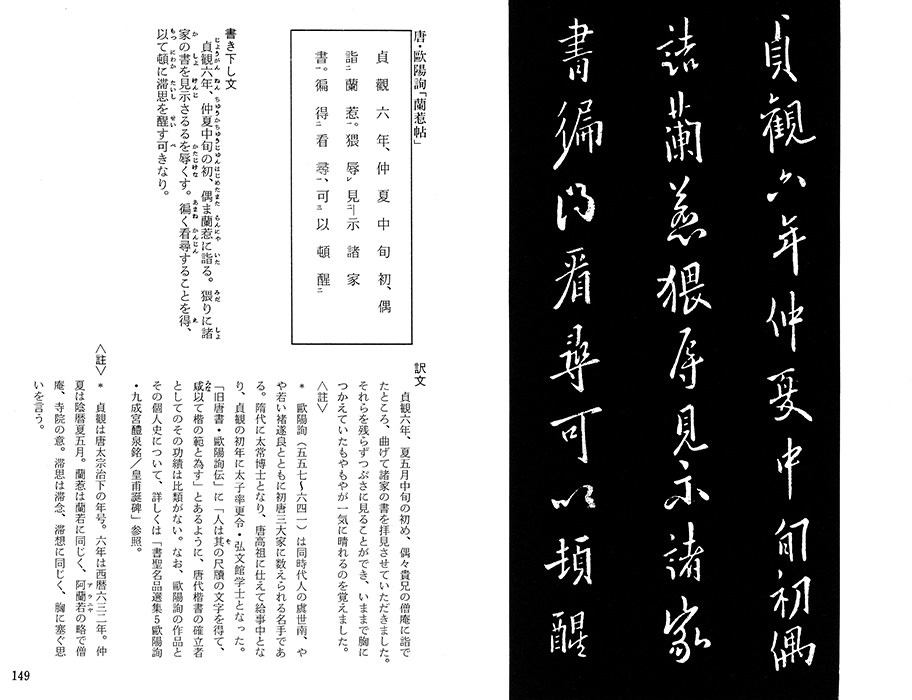 貞觀六年仲夏中旬初偶
詣蘭惹猥辱見示諸家
書徧得看尋可以頓醒
唐・歐陽詢「蘭惹帖」
貞觀六年、仲夏中旬初、偶
詣ニ蘭惹。猥辱レ見ニ示諸家
書一。徧得ニ看尋一、可ニ以頓醒ニ
書き下し文
貞観六年、仲夏中旬の初、偶ま蘭惹に詣る。猥りに諸
家の書を見示さるるを辱くす。徧く看尋することを得、
以て頓に滞思を醒す可きなり。
訳文
貞観六年、夏五月中旬の初め、偶々貴兄の僧庵に詣で
たところ、曲げて諸家の書を拝見させていただきました。
それらを残らずつぶさに見ることができ、いままで胸に
つかえていたもやもやが一気に晴れるのを覚えました。
〈註〉
* 歐陽詢(五五七〜六四一)は同時代人の虞世南、や
や若い褚遂良とともに初唐三大家に数えられる名手であ
る。隋代に太常博士となり、唐高祖に仕えて給事中とな
り、貞観の初年に太子率更令・弘文館学士となった。
「旧唐書・歐陽詢伝」に「人は其の尺牘の文字を得て、
咸以て楷の範と為す」とあるように、唐代楷書の確立者
としてのその功績は比類がない。なお、歐陽詢の作品と
その個人史について、詳しくは「書聖名品選集5歐陽詢
・九成宮醴泉銘／皇甫誕碑」参照。
〈註〉 * 貞観は唐太宗治下の年号。六年は西暦六三二年。仲
夏は陰暦夏五月。蘭惹は蘭若に同じく、阿蘭若の略で僧
庵、寺院の意。滞思は滞念、滞想に同じく、胸に塞ぐ思
いを言う。
149